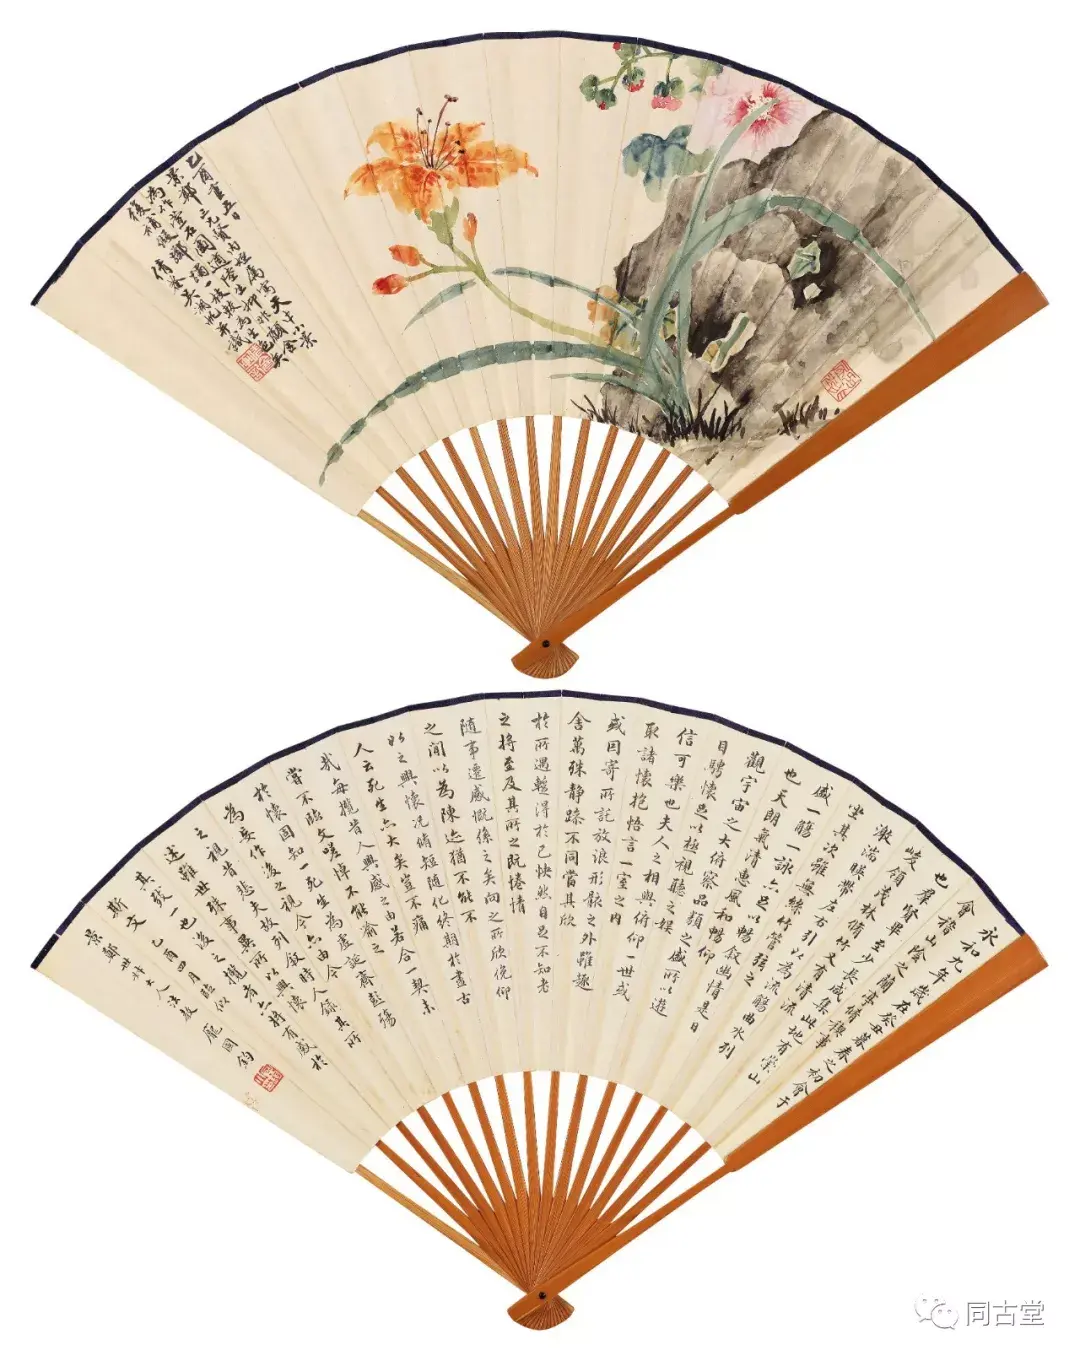 乙酉重五日
景鄭三兄賢內姪屬寫天中小景
為作萱石圖適陸
倩盦吳湖帆并識
永和九年歲在癸丑暮春之初會于
會稽山陰之蘭亭脩禊事
也羣賢畢至少長咸集此地有崇山
峻領茂林脩竹又有清流
激湍暎帶左右引以為流觴曲水列
坐其次雖無絲竹管弦之
盛一觴一詠亦足以暢敘幽情是日
也天朗氣清惠風和暢仰
觀宇宙之大俯察品類之盛所以遊
目騁懷足以極視聽之娛
信可樂也夫人之相與俯仰一世或
取諸懷抱悟言一室之內
或因寄所託放浪形骸之外雖趣
舍萬殊靜躁不同當其欣
於所遇蹔得於己快然自足不知老
之將至及其所之既惓情
隨事遷感慨係之矣向之所欣俛仰
之間以為陳迹猶不能不
以之興懷況脩短隨化終期於盡古
人云死生亦大矣豈不痛
哉每攬昔人興感之由若合一契未
嘗不臨文嗟悼不能喻之
於懷固知一死生為虛誕齊彭殤
為妄作後之視今亦由今
之視昔悲夫故列敘時人錄其所
述雖世殊事異所以興懷
其致一也後之攬者亦將有感於
斯文 乙酉四月臨似
景鄭世大人法教 龐國鈞
同古堂